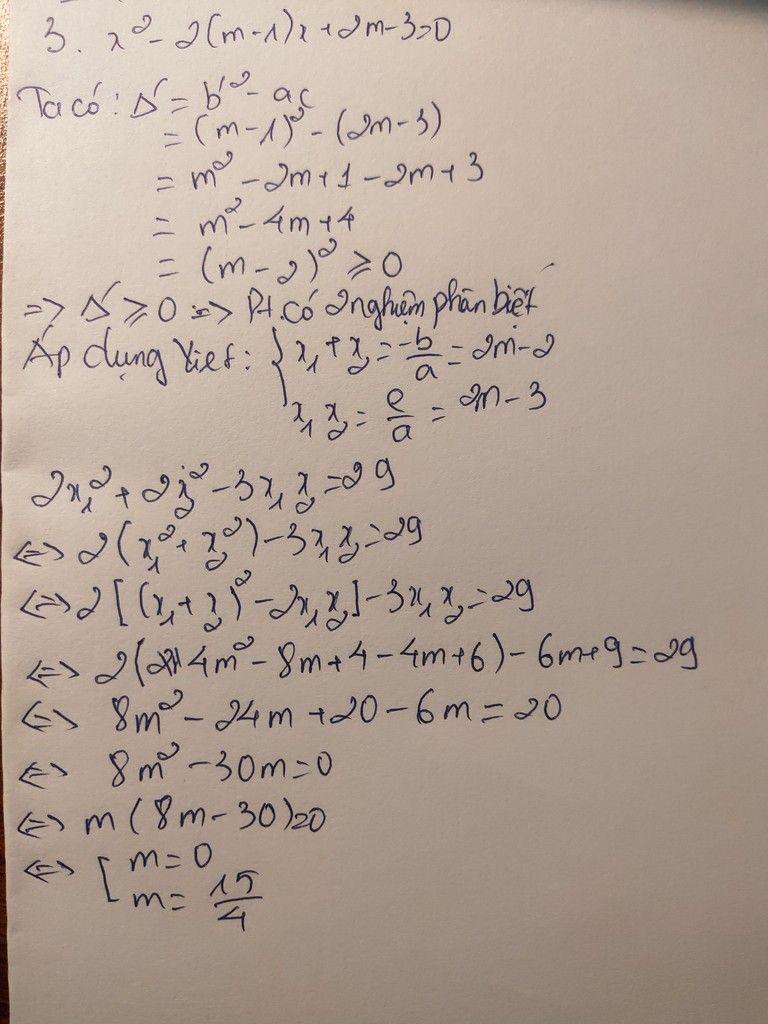 3. x² - 2(m-1)x + 2m-3=0
Ta có: Δ' = b'² - ac
= (m-1)² - (2m-3)
= m² - 2m+1 - 2m+3
= m² - 4m+4
= (m-2)² ≥ 0
=> Δ' ≥ 0 => Pt có 2 nghiệm phân biệt
Áp dụng Viet: { x₁ + x₂ = -b/a = 2m-2
x₁ x₂ = c/a = 2m-3
2x₁² + 2x₂² - 3x₁x₂ = 29
<=> 2(x₁² + x₂²) - 3x₁x₂ = 29
<=> 2[(x₁+x₂)² - 2x₁x₂] - 3x₁x₂ = 29
<=> 2(4m² - 8m+4 - 4m+6) - 6m+9 = 29
<=> 8m² - 24m +20 - 6m = 20
<=> 8m² - 30m = 0
<=> m(8m-30)=0
<=> [ m=0
m= 15/4